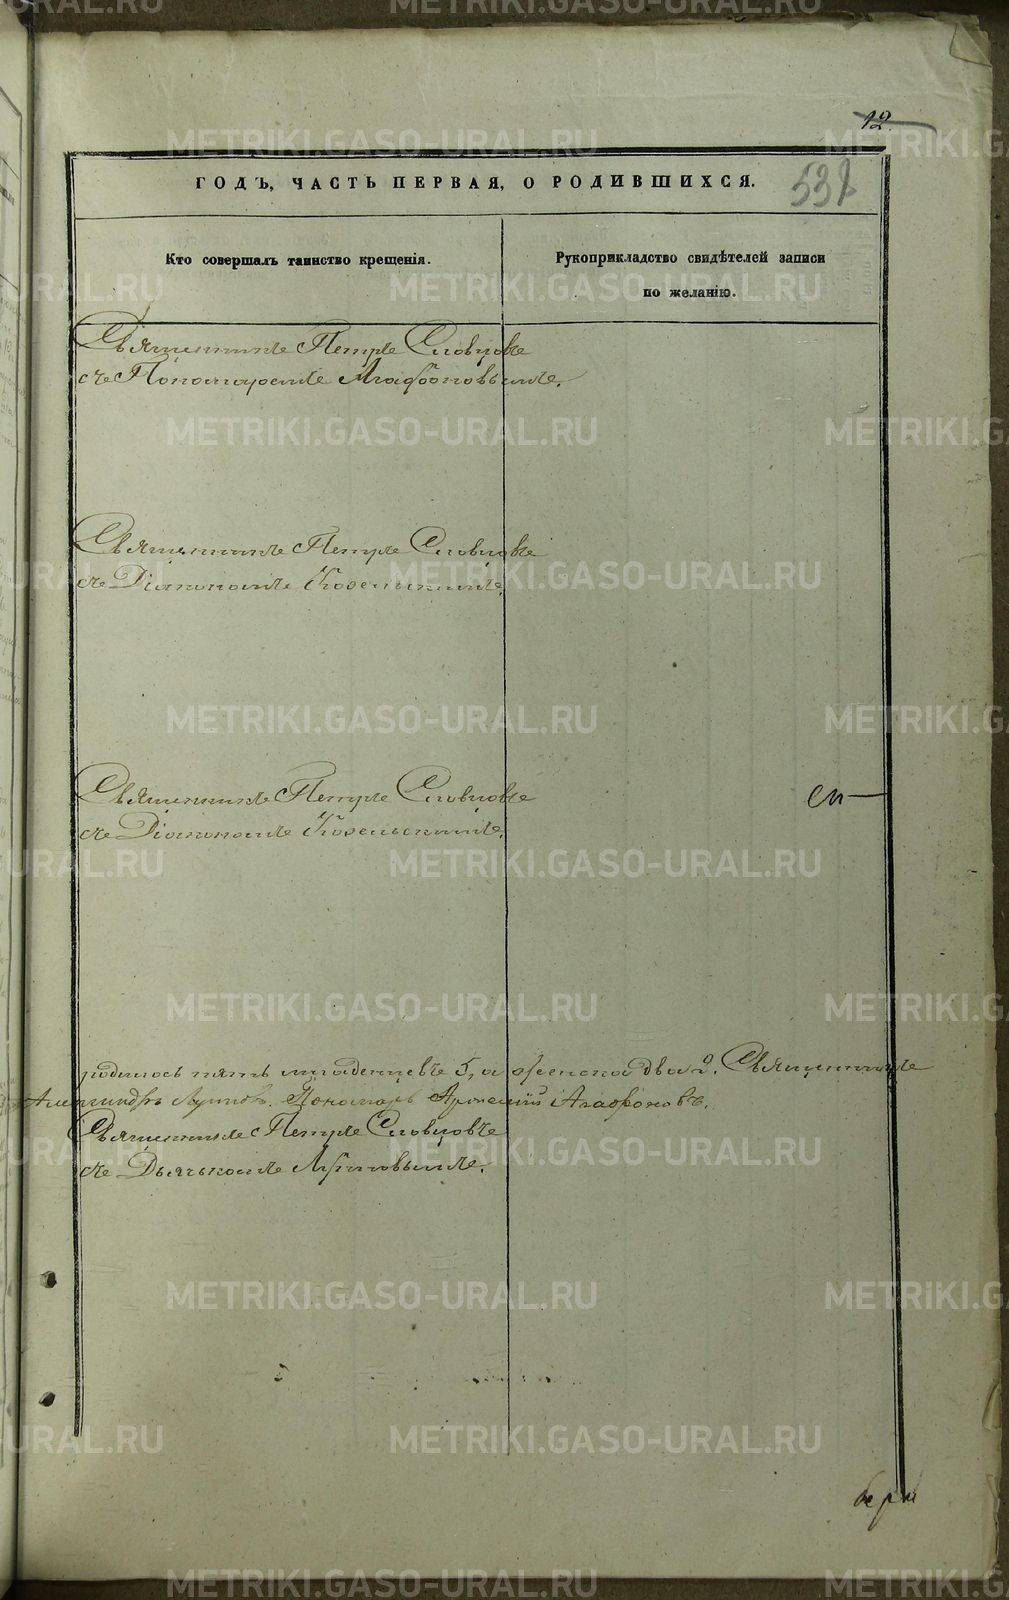 12.
ГОДЪ, ЧАСТЬ ПЕРВАЯ, О РОДИВШИХСЯ.
Кто совершалъ таинство крещенія.
Рукоприкладство свидѣтелей записи
по желанію.
Священникъ Петръ Словцовъ
съ Пономаремъ Агафоновымъ.
Священникъ Петръ Словцовъ
съ Діакономъ Козельскимъ.
Священникъ Петръ Словцовъ
съ Діакономъ Козельскимъ.
родилось пять младенцевъ 5, а женска два 2. Священникъ
Александръ Луканинъ. Пономарь Арсеній Агафоновъ.
Священникъ Петръ Словцовъ
съ Дьячькомъ
METRIKI.GASO-URAL.RU